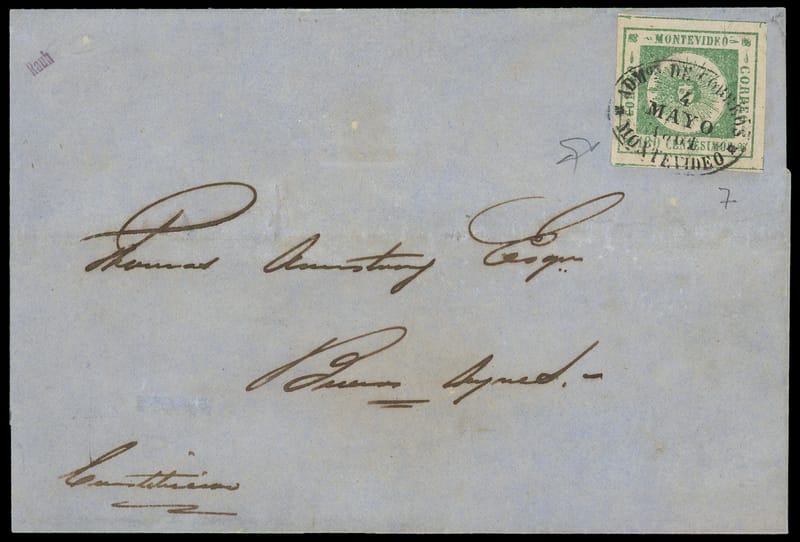 Rauh
MONTEVIDEO
CORREOS
CENTESIMOS
ADMON DE CORREOS
4
MAYO
MONTEVIDEO
7
Thomas Armstrong Esqr
Buenos Ayres.-
Constitucion